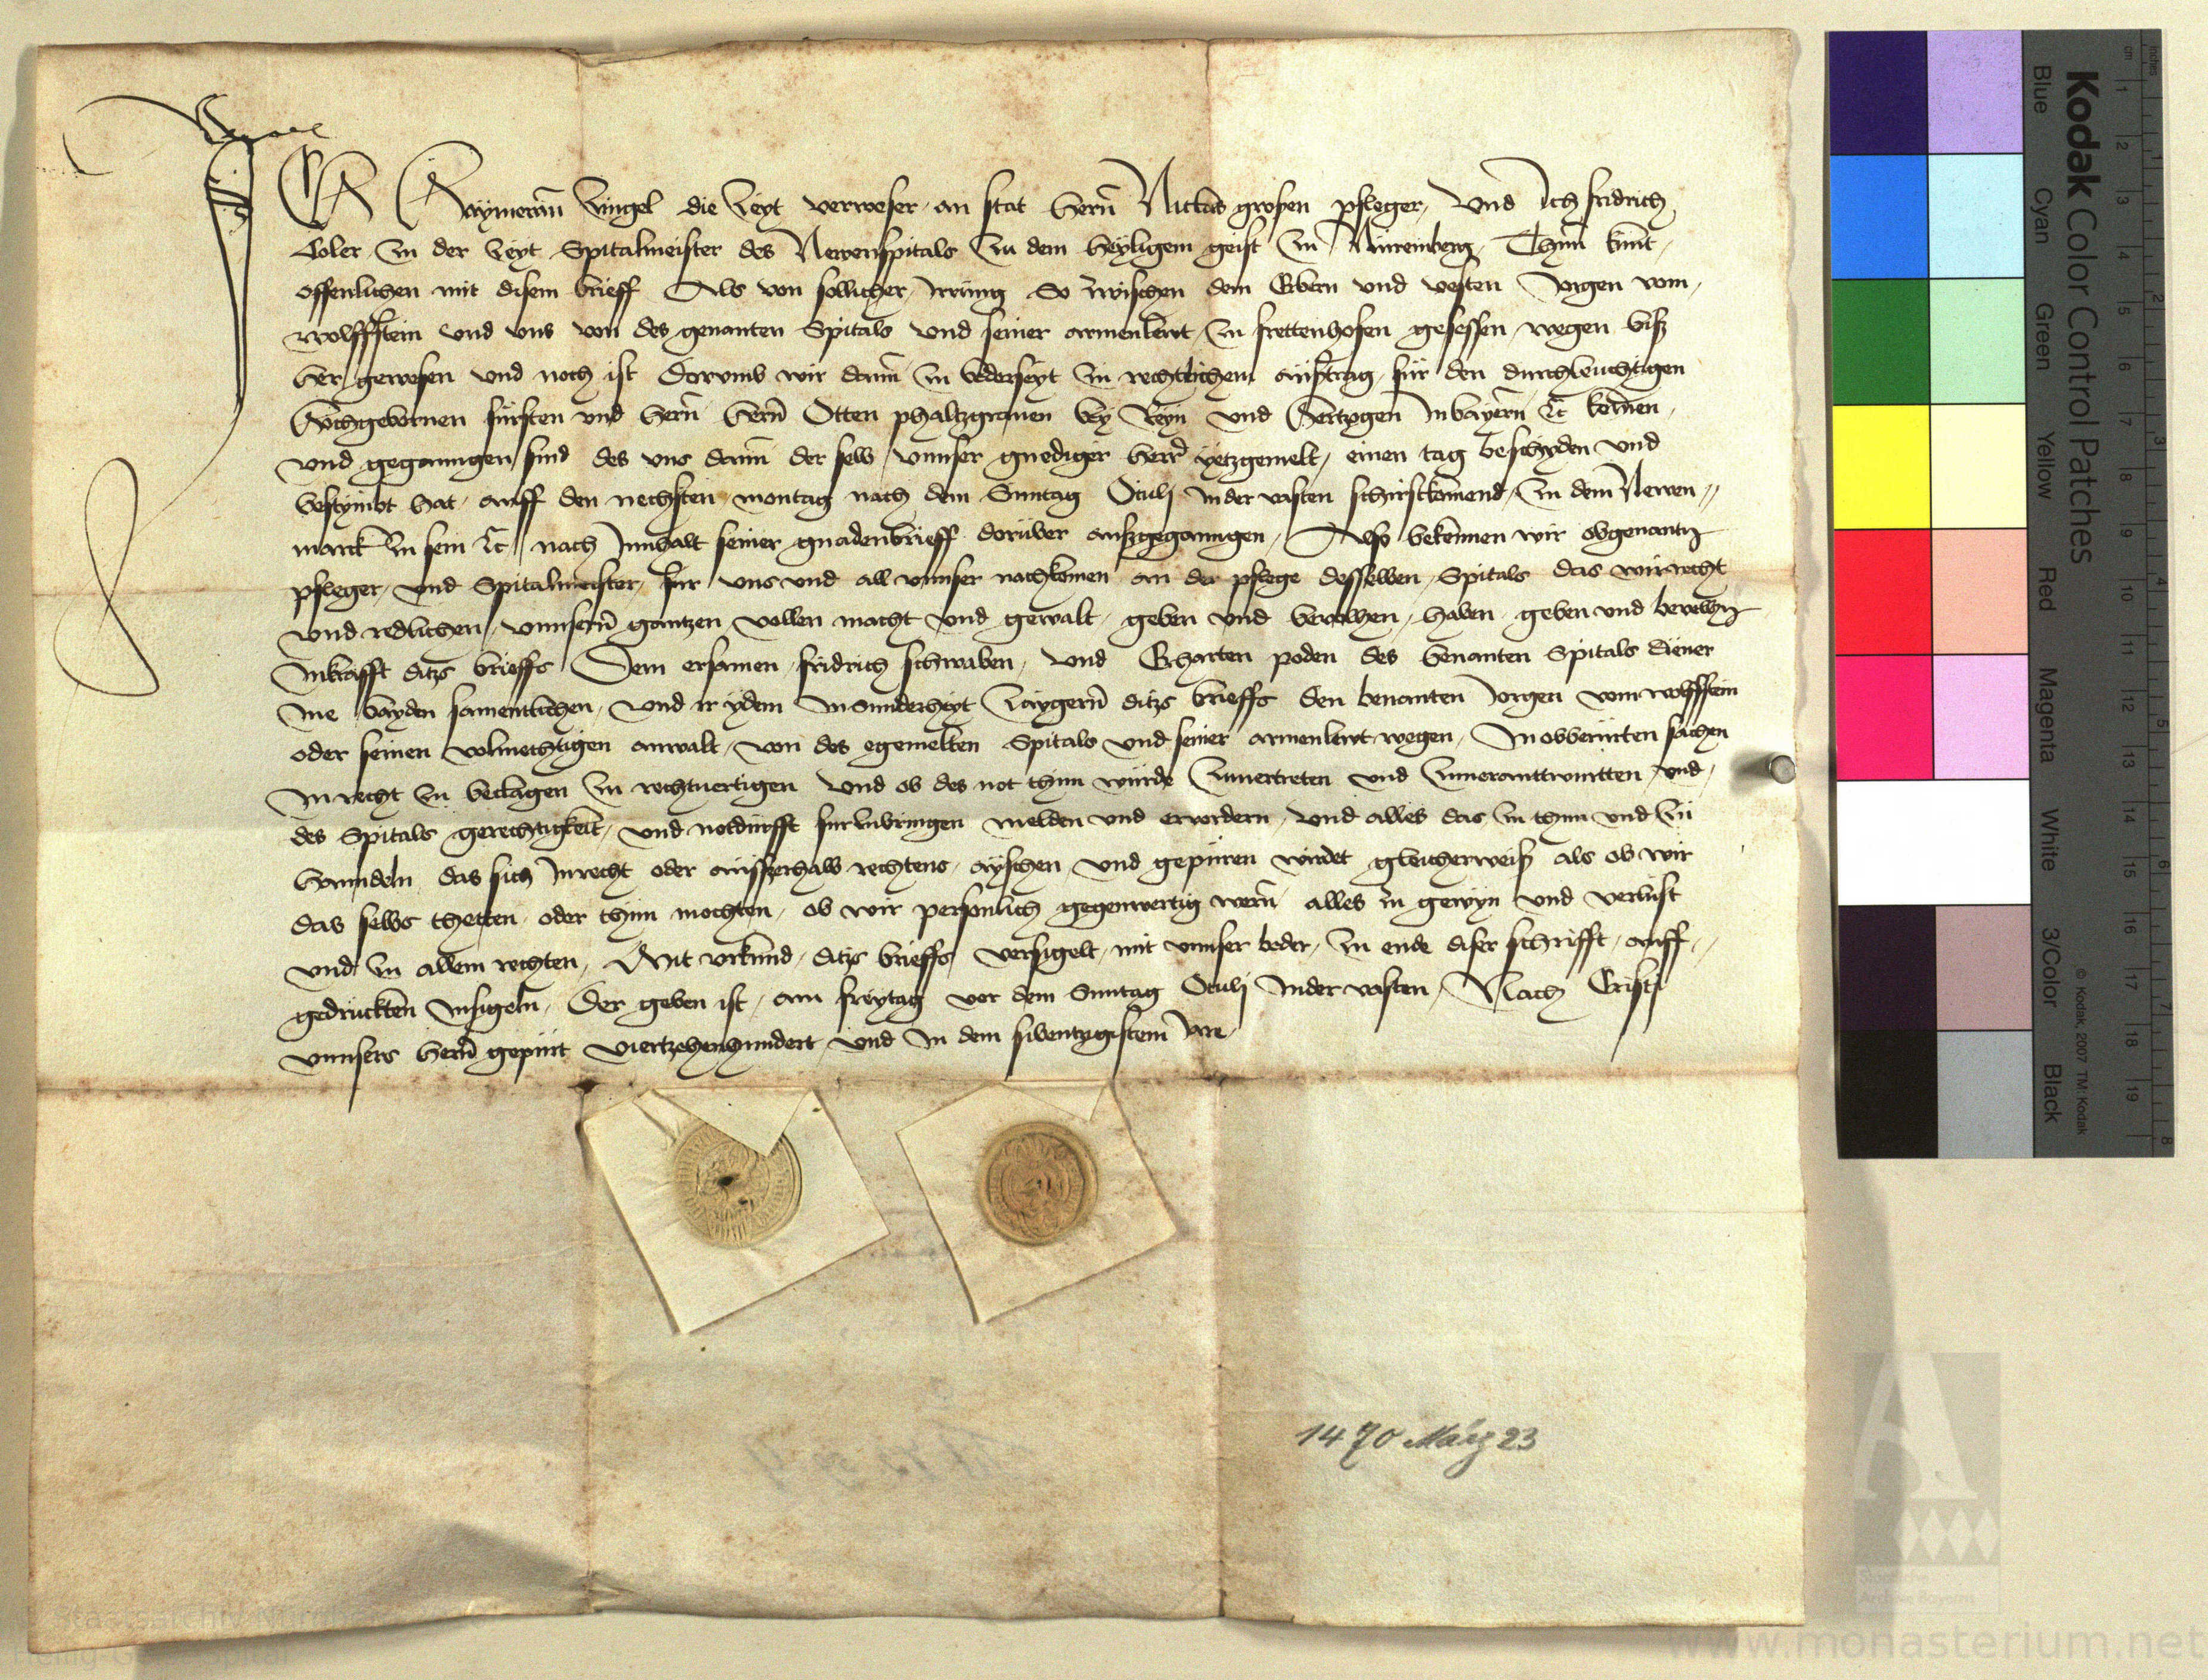 Ich Haymeram Zingel die Zeyt verweser an stat hern̄ Niclas grosen pfleger, Und Ich fridrich
Coler zu der Zeyt Spitalmeister des Newenspitals zu dem heyligem geist zu Nuremberg, Thun kunt,
offenlichen mit disem brieff Als von sollicher Irrung So zwischen dem Erbern und vesten Jorgen vom,
wolffstein und uns von des genanten Spitals und seiner armenlewt zu frettenhofen gesessen wegen bisz
her gewesen und noch ist Dorumb wir dann zu bederseyt zu rechtlichem austrag, fur den durchleuchtigen
hochgebornen fursten und hern̄ hern̄ Otten phaltzgrauen bey Reyn und Hertzogen In bayern̄ etc komen,
und gegangen sind des uns dann der selb unnser gnediger herr yetzgemelt, einen tag beschyden und
bestymbt hat auff den nechsten montag nach dem Suntag Oculj In der vasten schirstkomend, zu dem Newen
marck zu sein etc nach Innhalt seiner gnadenbrieff doruber auszgegangen, Also bekennen wir obgenantn
pfleger, und Spitalmeister, fur uns und all unnser nachkomen an der pflege desselben, Spitals das wir recht
und redlichen, unnsern̄ gantzen vollen macht und gewalt, geben und bevolhen, haben, geben und bevelhn
Inkrafft ditzs brieffs Dem ersamen fridrich schwaben, und Erharten poden des benanten Spitals diener
Ine bayden samentlichen, und ir ydem In sunderheyt Zaygern̄ ditzs brieffs den benanten Jorgen vom wolffstein
oder seinen volmechtigen anwalt, von des egemelten Spitals und seiner armenlewt wegen, In obberurten sachen
In recht zu beclagen zu rechtuertigen Und ob des not thun wurde zuuertreten und zuuerantwurtten und,
des Spitals gerechtigkeit, und notdurfft furzubringen melden und erfordern, und alles das zu thun und zu
hanndeln das sich In recht oder ausserhalb rechtens, ayschen und gepuren wirdet gleicherweisz als ob wir
das selbs thetten oder thun mochten, ob wir personlich gegenwertig wern̄ alles zu gewyn und verlust
und zu allem rechten, Mit urkund ditzs brieffs versigelt mit unnser beder, zu ende diser schrifft, auff
gedruckten Insigeln, Der geben ist, am freytag vor dem Suntag Oculj In der vasten, Nach Cristj
unnsers hern̄ gepurt viertzehenhundert und In dem sibentzigistem Jare
1470 März 23
Kodak Color Control Patches
Blue Cyan Green Yellow Red Magenta White 3/Color Black
© Kodak, 2007 TM: Kodak
Staatsarchiv Nürnberg
Heilig-Geist-Spital
www.monasterium.net